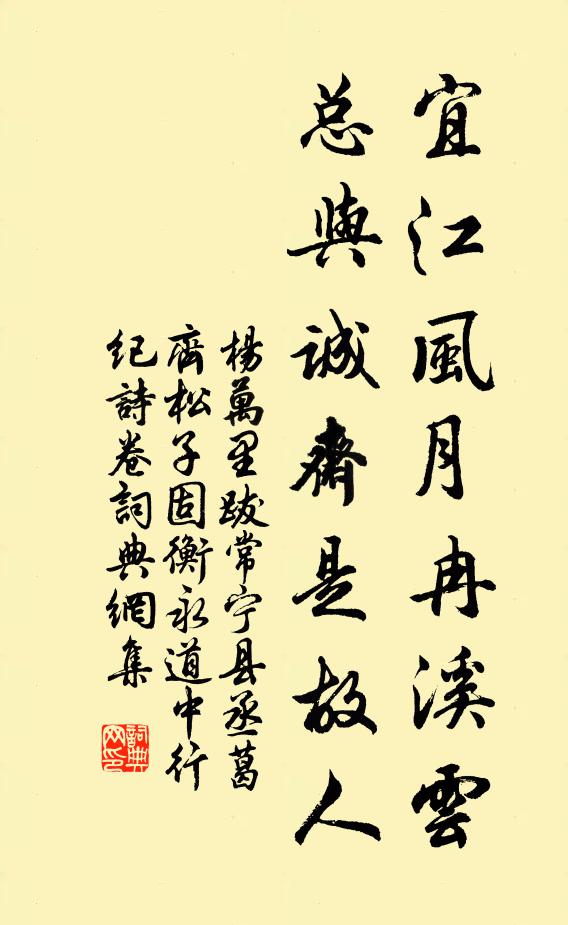 宜江風月冉溪雲
总與誠齋是故人
楊萬里跋常宁县丞葛
齊松子固衡永道中行
紀詩卷詞典網集
詞典网印